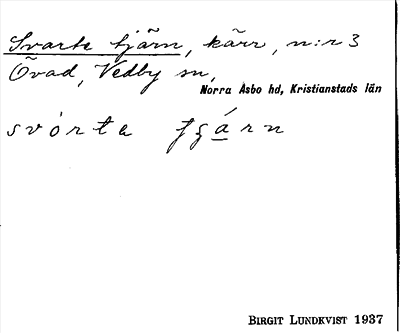 Svarte tjärn, kärr, n:r 3
Övad, Vedby sn,
Norra Åsbo hd, Kristianstads län
svórte
BIRGIT LUNDKVIST 1937